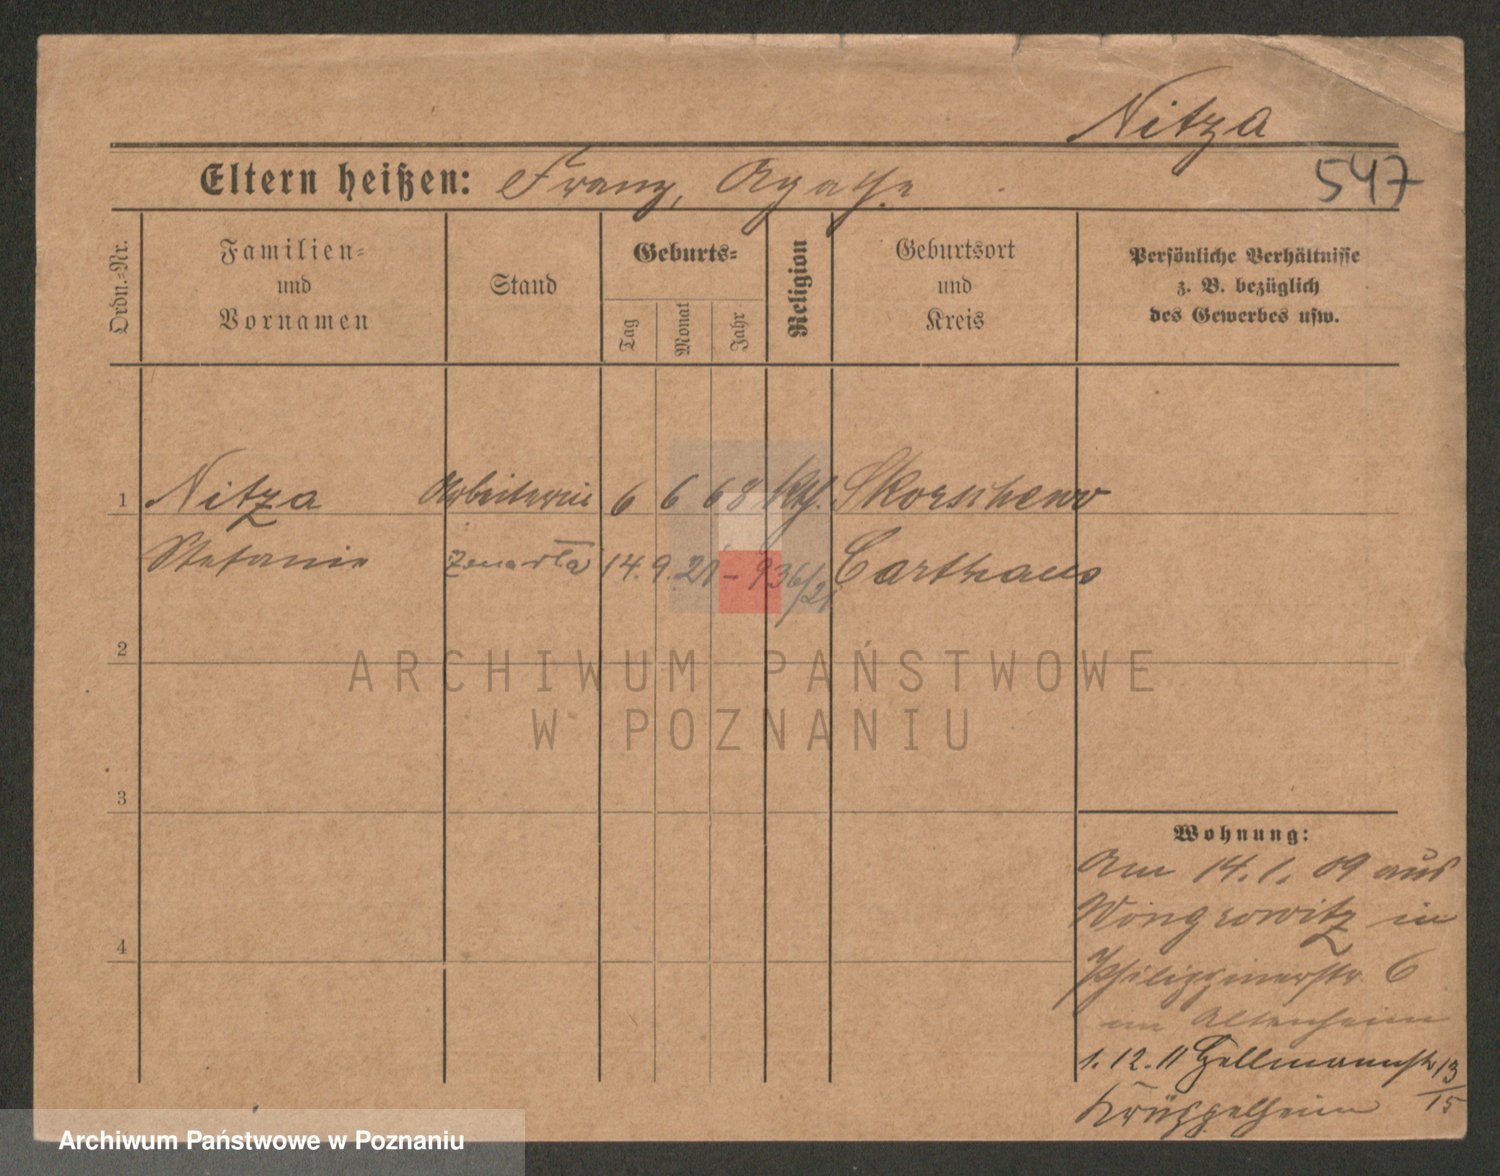 Nitza
Eltern heißen: Franz, Agathe
547
Ordn.-Nr.
Familien-
und
Vornamen
Stand
Geburts-
Tag
Monat
Jahr
Religion
Geburtsort
und
Kreis
Persönliche Verhältnisse
z. B. bezüglich
des Gewerbes usw.
1 Nitza Arbeiterin 6 6 68 kth. Skorschewo
Stefanie zmarła 14.9.21 - 936/21 Carthaus
2
ARCHIWUM PAŃSTWOWE
W POZNANIU
3
Wohnung:
Am 14.1.09 aus
Wongrowitz in
4
Philippinerstr. 6
im Altenheim
1.12.11 Hellmannstr 13/15
Krüppelheim
Archiwum Państwowe w Poznaniu